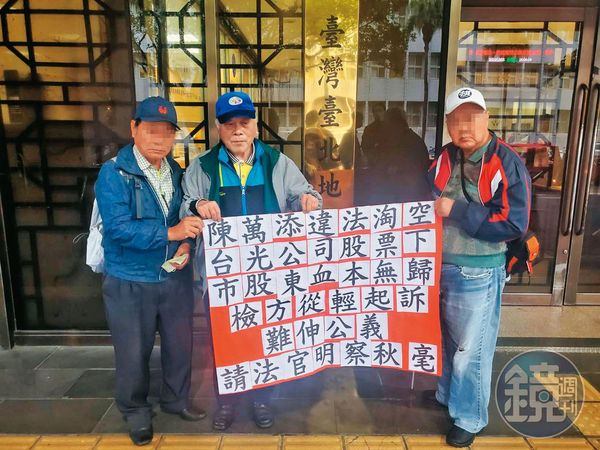 臺灣臺北地
陳萬添違法淘空
台光公司股票下
市股東血本無歸
檢方從輕起訴
難伸公義
請法官明察秋毫
鏡週刊